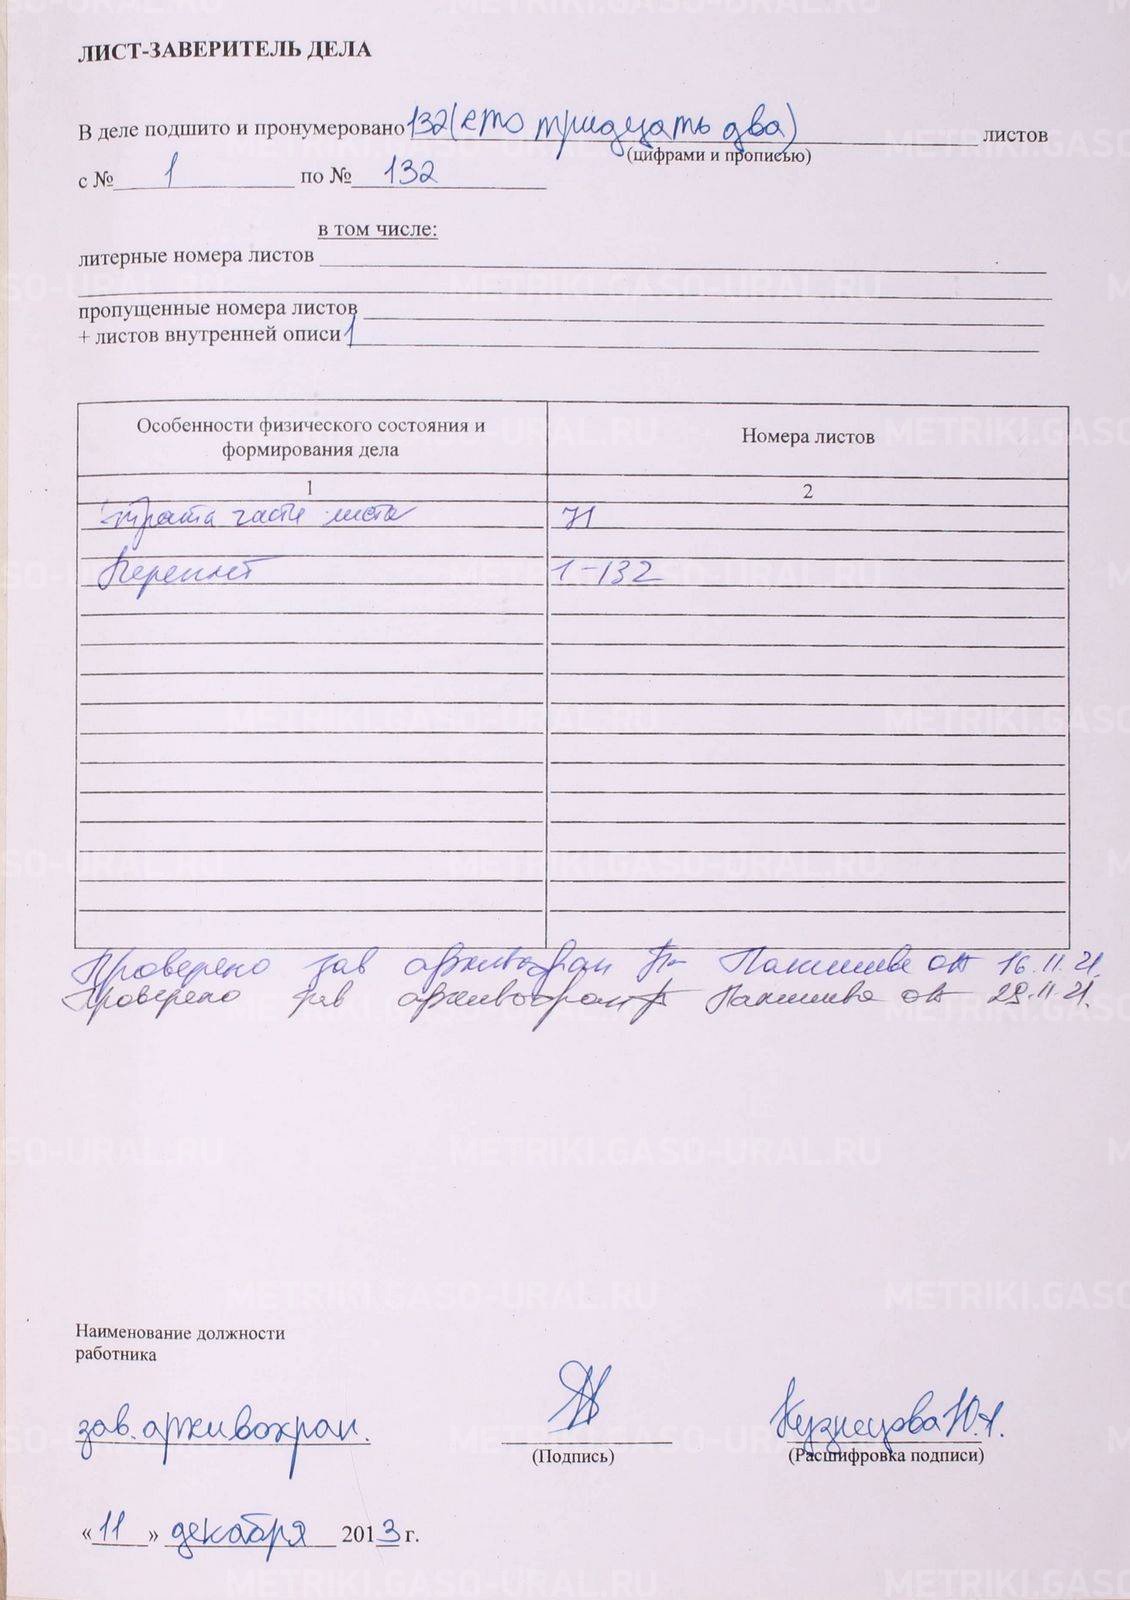 ЛИСТ-ЗАВЕРИТЕЛЬ ДЕЛА
В деле подшито и пронумеровано 132 (сто тридцать два) листов
(цифрами и прописью)
с № 1 по № 132
в том числе:
литерные номера листов
пропущенные номера листов
+ листов внутренней описи 1
Особенности физического состояния и формирования дела
Номера листов
1 2
Утрата части листа 71
Переплет 1-132
Проверено зав архивохран 16.11.21.
Проверено зав архивохран 29.11.21.
Наименование должности
работника
зав. архивохран. Кузнецова Ю.А.
(Подпись) (Расшифровка подписи)
«11» декабря 2013 г.
METRIKI.GASO-URAL.RU